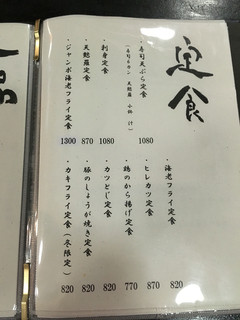 定食
・寿司天ぷら定食 1080
(寿司6カン 天麩羅 小鉢 汁)
・刺身定食 1080
・天麩羅定食 870
・ジャンボ海老フライ定食 1300
・海老フライ定食 820
・ヒレカツ定食 870
・鶏のから揚げ定食 770
・カツとじ定食 820
・豚のしょうが焼き定食 820
・カキフライ定食(冬限定) 820